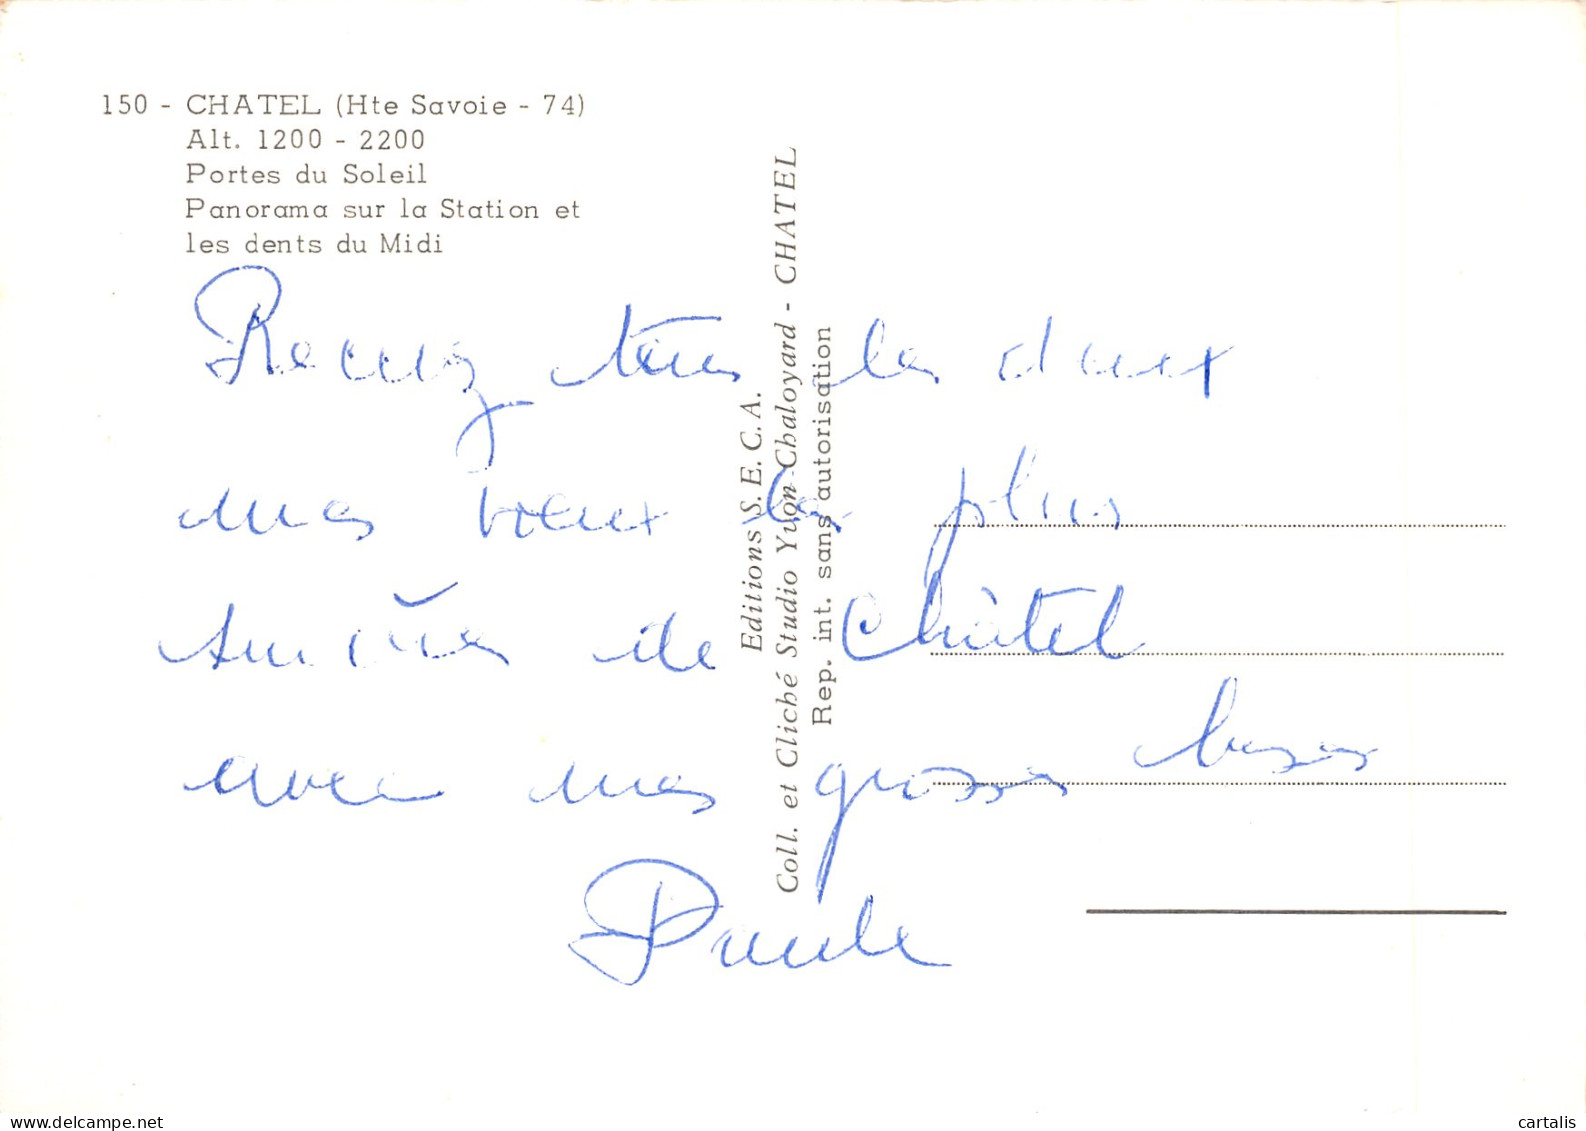 150 - CHATEL (Hte Savoie - 74)
Alt. 1200 - 2200
Portes du Soleil
Panorama sur la Station et
les dents du Midi
Recevez tous les deux
mes vœux les plus
sincères de Châtel
avec mes grosses bises
Paule
Editions S.E.C.A.
Coll. et Cliché Studio Yvon-Chaloyard - CHATEL
Rep. int. sans autorisation
www.delcampe.net
cartalis